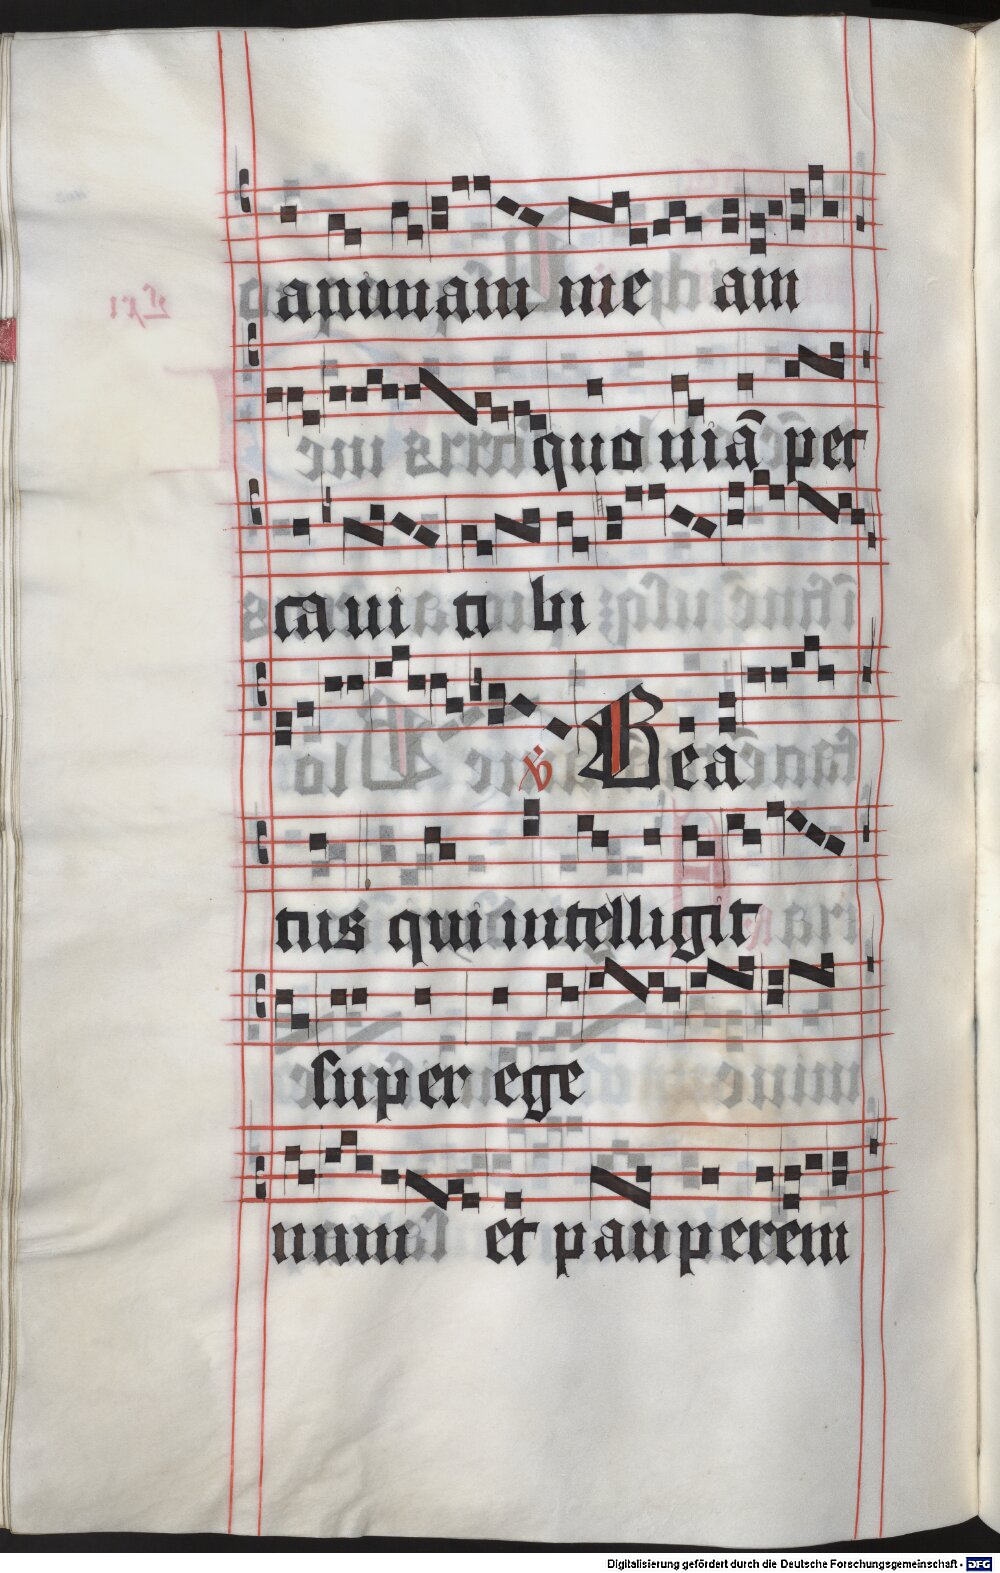 animam me am
quo niā pec
ca ui ti bi
℣ Bea
tus qui intelligit
super ege
num et pauperem
Digitalisierung gefördert durch die Deutsche Forschungsgemeinschaft - DFG